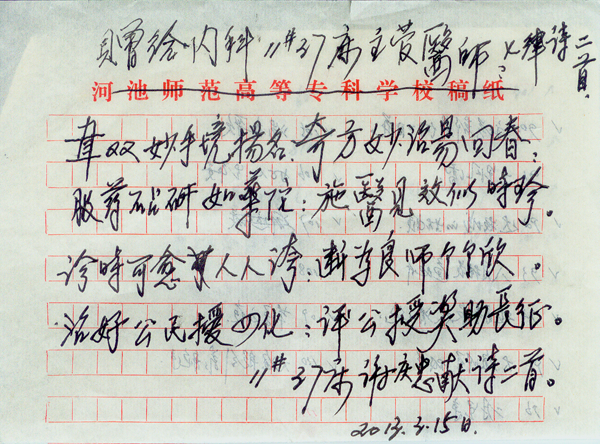 贈给内科11#37床主管醫師：七律诗二首
河池师范高等专科学校稿纸
双妙手境揚名．奇方妙治易回春；
服药砧研如華陀；施醫見效似時珍。
诊時可愈人人誇；断羊良师个个欣。
治好公民援四化；评公授奖助長征。
11#37床谢患献诗二首。
2013.3.15日.